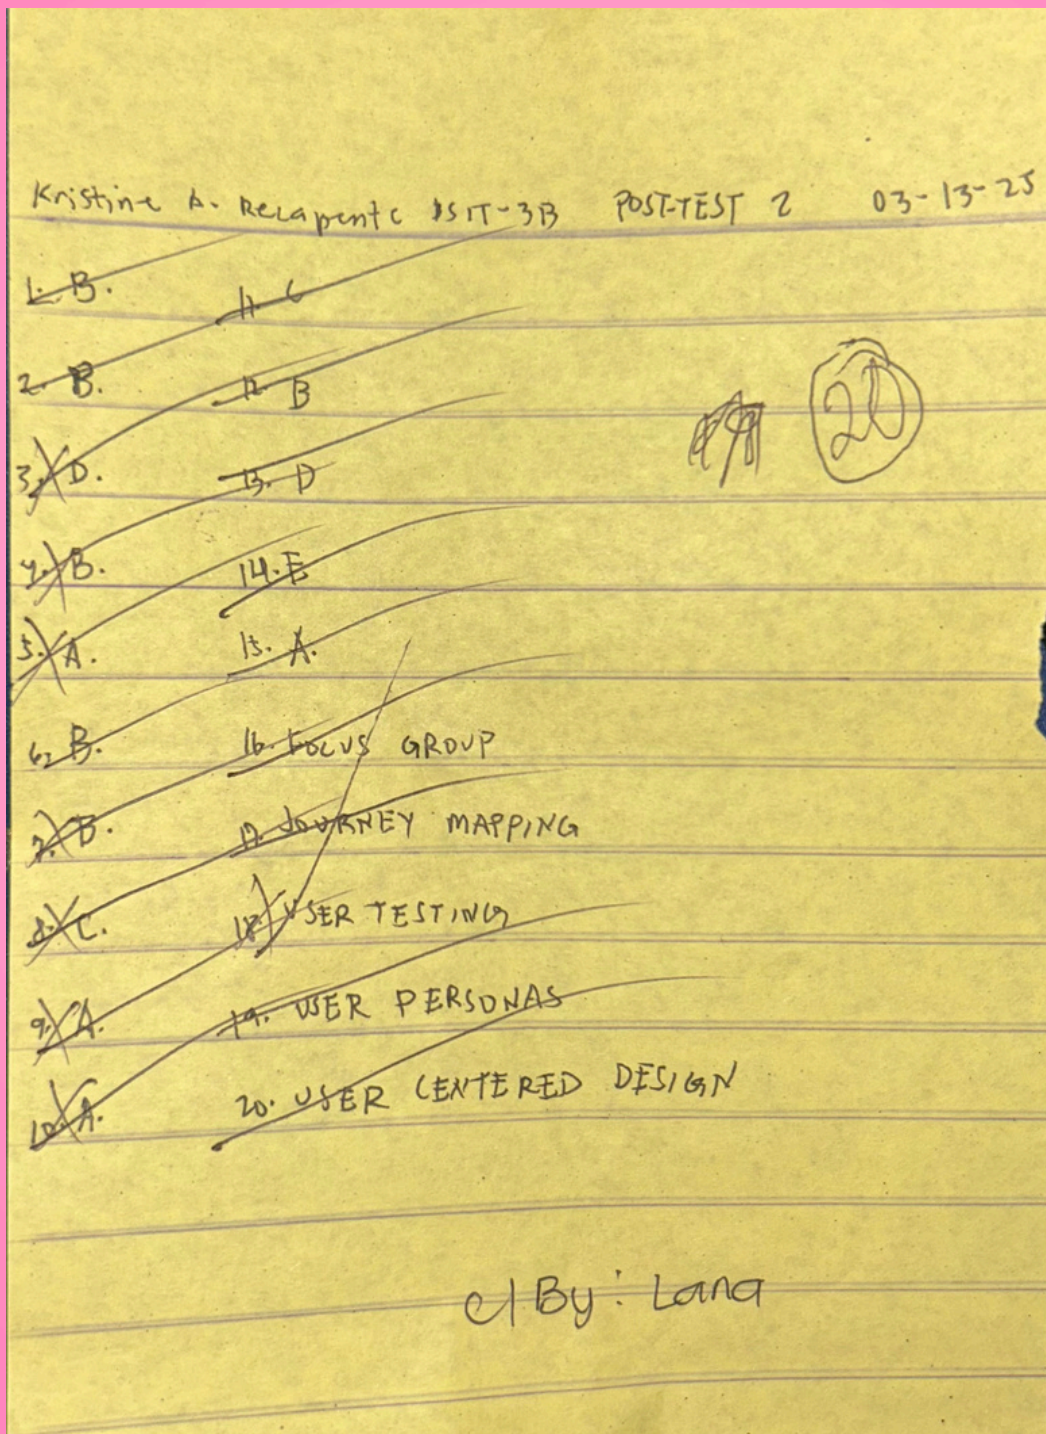 Kristine A. Recapente BSIT-3B POST-TEST 2 03-13-25
1. B.
2. B.
3. D.
4. B.
5. A.
6. B.
7. B.
8. C.
9. A.
10. A.
11. C
12. B
13. D
14. E
15. A.
16. FOCUS GROUP
17. JOURNEY MAPPING
18. USER TESTING
19. USER PERSONAS
20. USER CENTERED DESIGN
20
c/ By: Lana